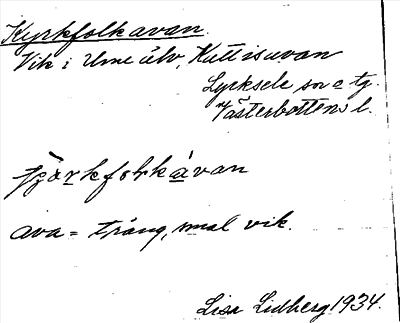 Kyrkfolkavan.
Vik i Ume älv, Kattisavan
Lycksele sn o tg.
Västerbottens l.
kfolkávan
ava = trång, smal vik.
Lisa Lidberg 1934.